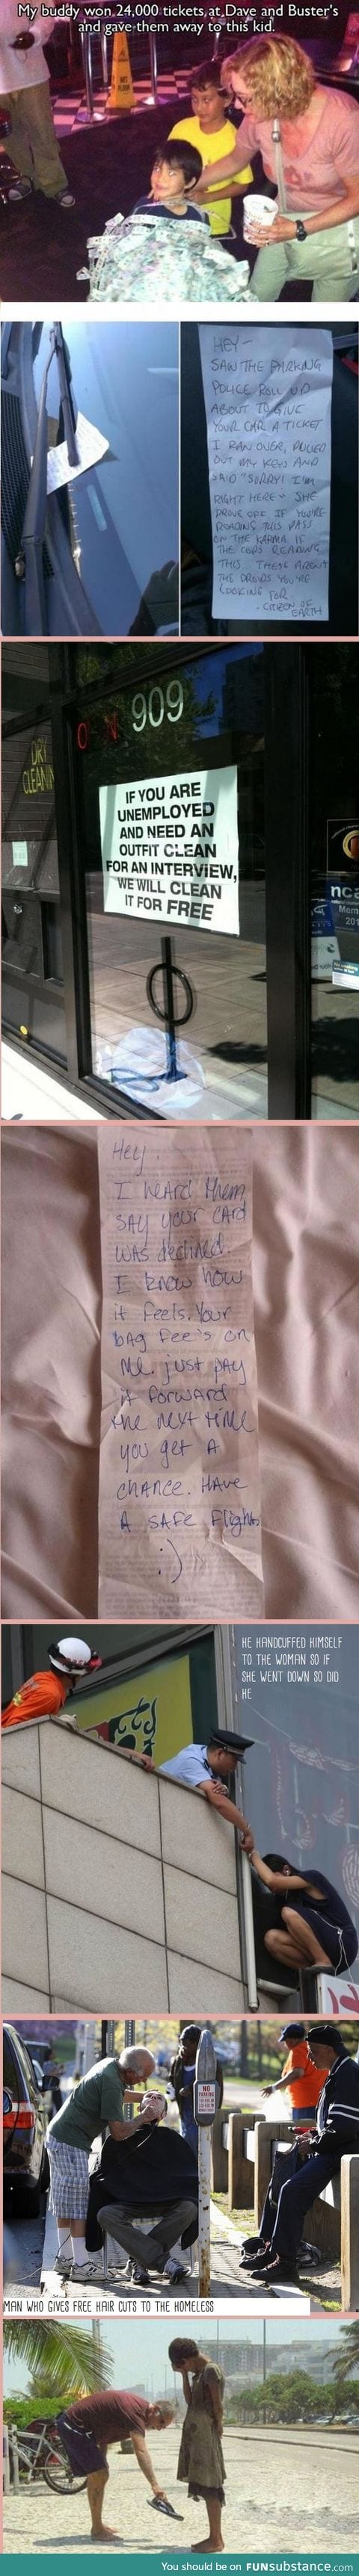 My buddy won 24,000 tickets at Dave and Buster's
and gave them away to this kid.
HEY-
SAW THE PARKING
POLICE ROLL UP
ABOUT TO GIVE
YOUR CAR A TICKET
I RAN OVER, PULLED
OUT MY KEYS AND
SAID "SORRY! I'M
RIGHT HERE" SHE
DROVE OFF. IF YOU'RE
READING THIS PASS
ON THE KARMA. IF
THE COPS READING
THIS. THESE AREN'T
THE DROIDS YOU'RE
LOOKING FOR
- CITIZEN OF
EARTH
909
DRY
CLEANIN
IF YOU ARE
UNEMPLOYED
AND NEED AN
OUTFIT CLEAN
FOR AN INTERVIEW,
WE WILL CLEAN
IT FOR FREE
nca
Mem
201
Hey,
I heard them
say your card
was declined.
I know how
it feels. Your
bag fee's on
me. just pay
it forward
the next time
you get a
chance. Have
a safe flight
:)
HE HANDCUFFED HIMSELF
TO THE WOMAN SO IF
SHE WENT DOWN SO DID
HE
NO
PARKING
MAN WHO GIVES FREE HAIR CUTS TO THE HOMELESS
You should be on FUNsubstance.com